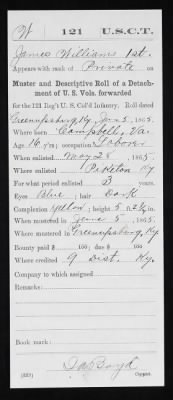 W | 121 | U.S.C.T.
James Williams 1st.
Appears with rank of Private on
Master and Descriptive Roll of a Detach-
ment of U. S. Vols. forwarded
for the 121 Reg't U. S. Col'd Infantry. Roll dated
Greenupsburg, Ky. Jun 5, 1865.
Where born Campbell, Va.
Age 16 y'rs; occupation Laborer
When enlisted May 28, 1865.
Where enlisted Piketon Ky
For what period enlisted 3 years.
Eyes Blue; hair Dark
Complexion Yellow; height 5 ft. 2½ in.
When mustered in June 5, 1865.
Where mustered in Greenupsburg, Ky.
Bounty paid $ 100; due $ 100
Where credited 9 Dist. Ky.
Company to which assigned
Remarks:
Book mark:
Boyd
Copyist.